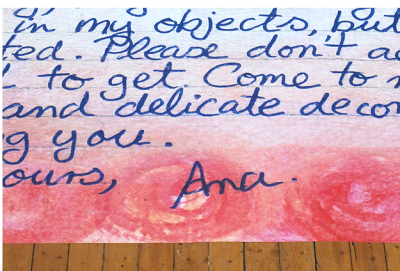 in my objects, but
ted. Please don't
to get. Come to
and delicate decor
g you.
ours,
Ana.